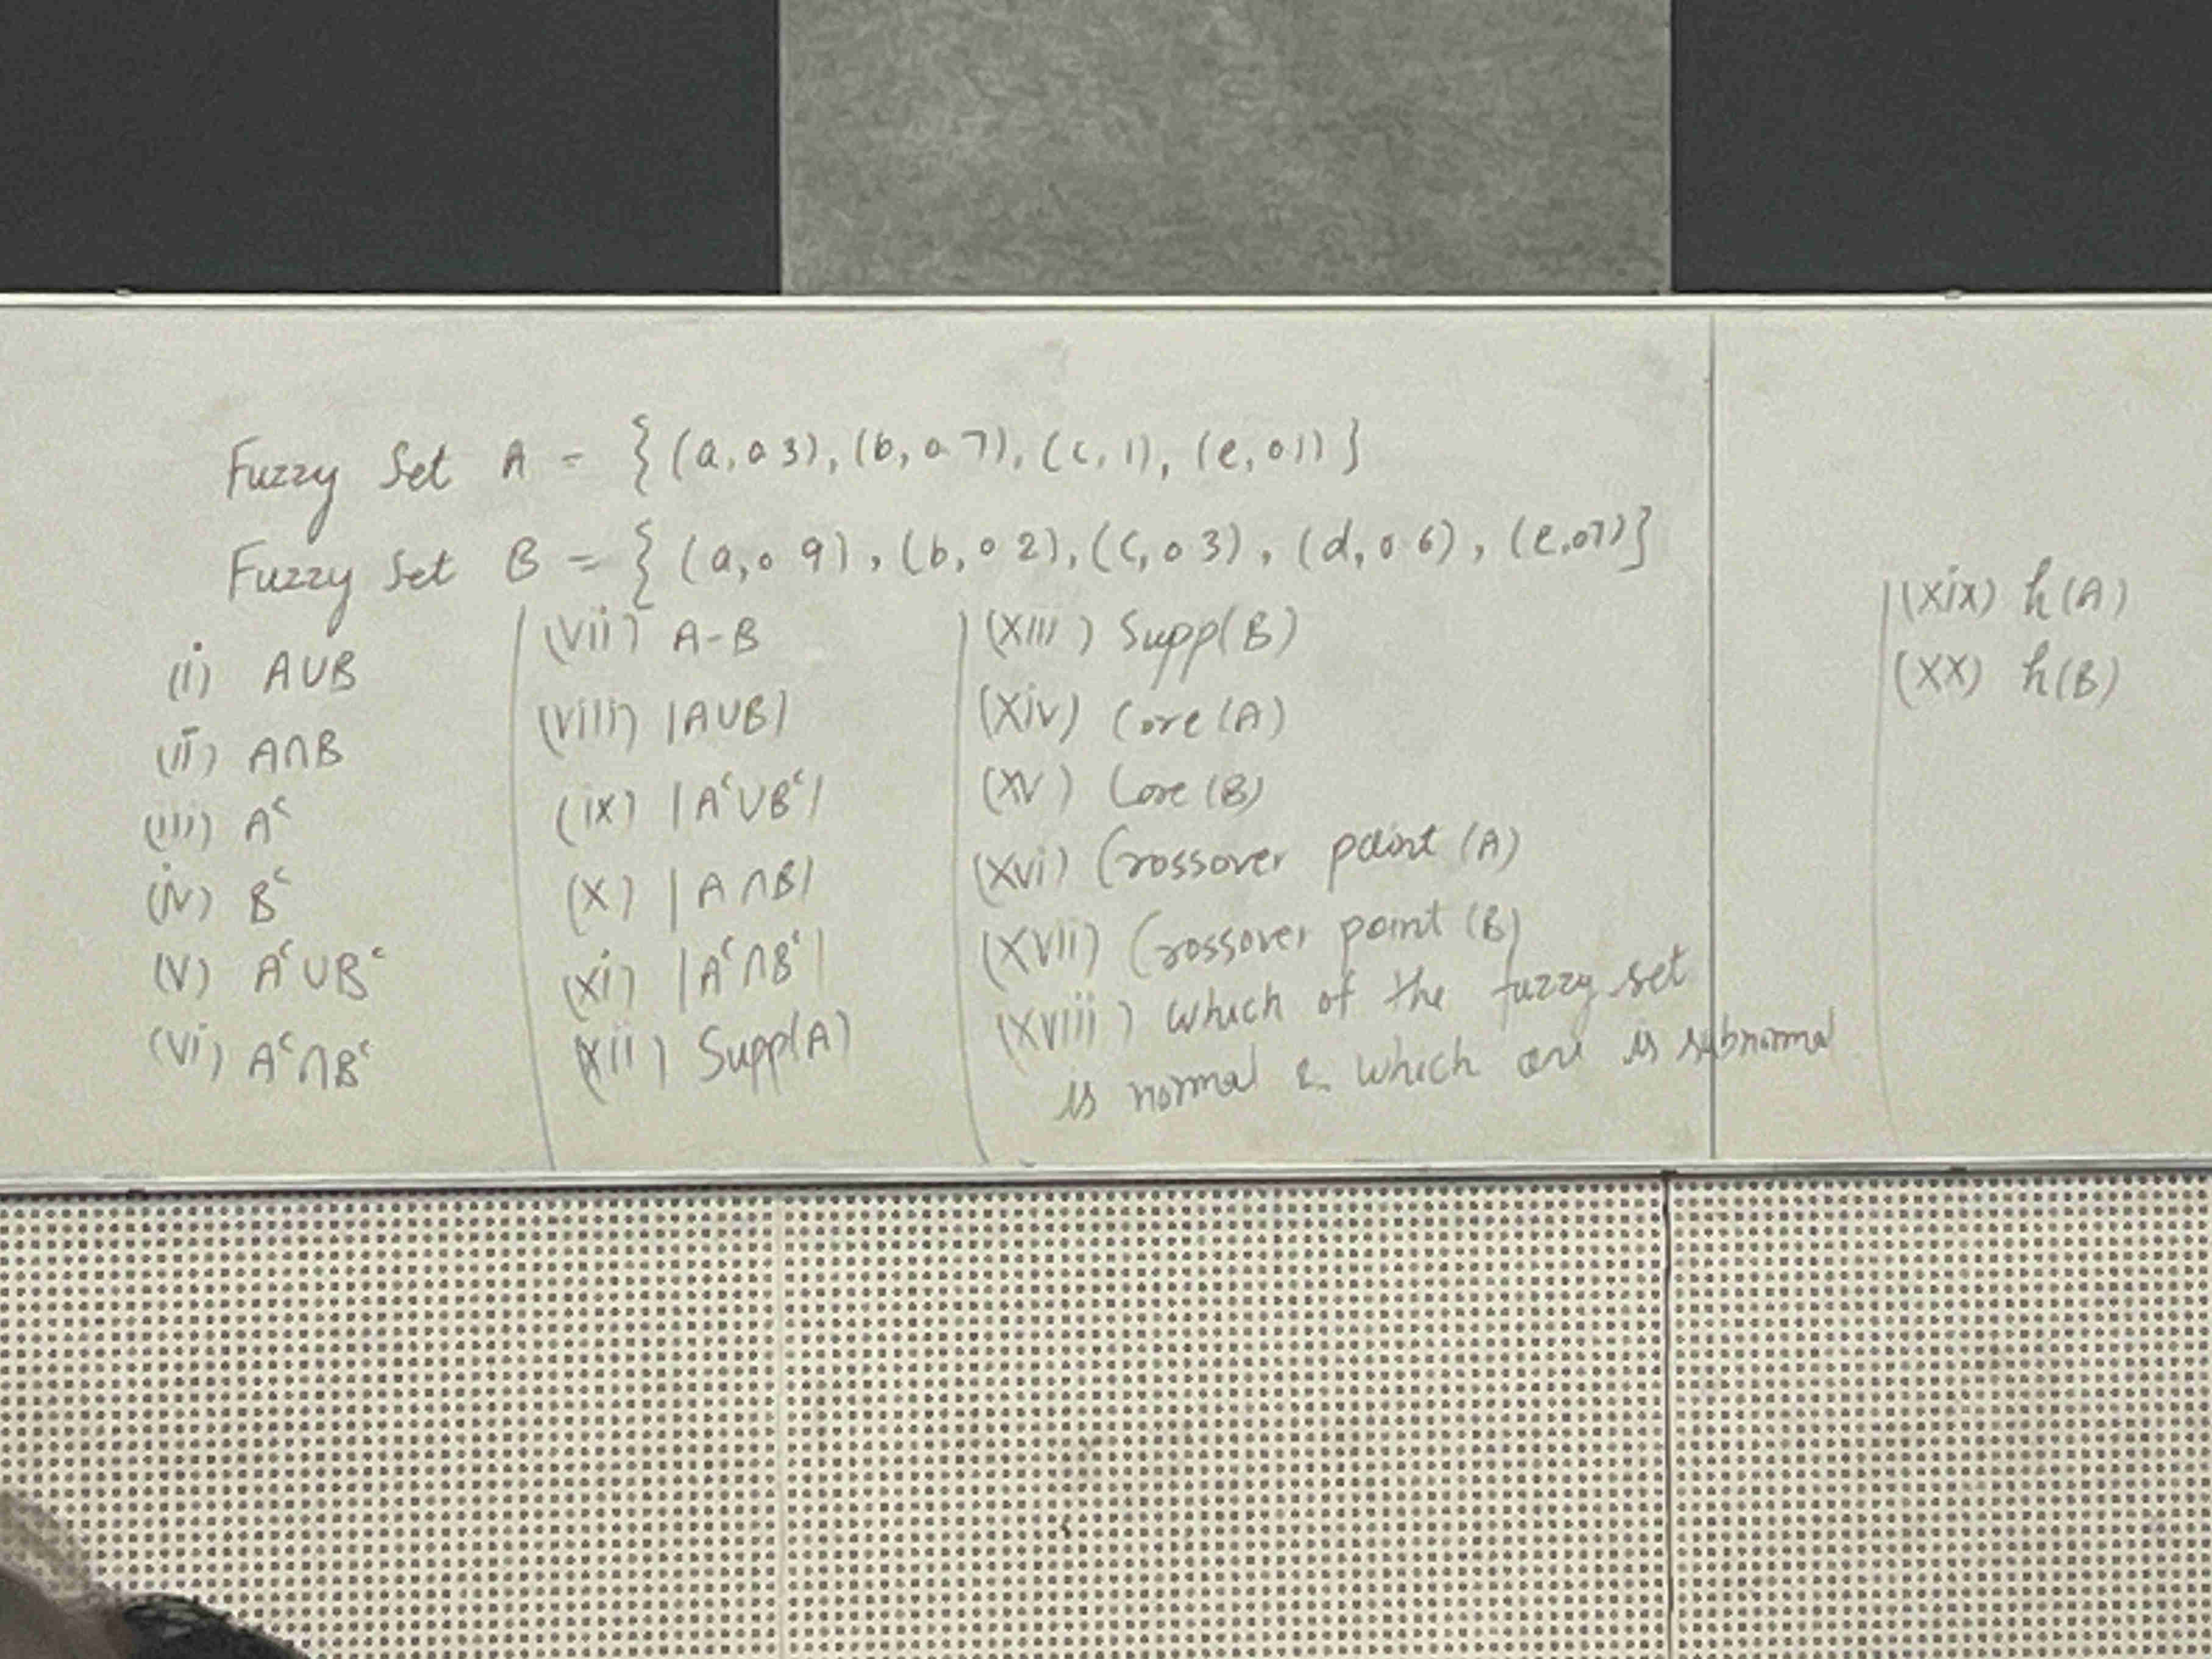 Fuzzy Set A = { (a, 0.3), (b, 0.7), (c, 1), (e, 0.1) }
Fuzzy Set B = { (a, 0.9), (b, 0.2), (c, 0.3), (d, 0.6), (e, 0.7) }
(i) A∪B
(ii) A∩B
(iii) Aᶜ
(iv) Bᶜ
(v) Aᶜ∪Bᶜ
(vi) Aᶜ∩Bᶜ
(vii) A-B
(viii) |A∪B|
(ix) |Aᶜ∪Bᶜ|
(x) |A∩B|
(xi) |Aᶜ∩Bᶜ|
(xii) Supp(A)
(xiii) Supp(B)
(xiv) Core (A)
(xv) Core (B)
(xvi) Crossover point (A)
(xvii) Crossover point (B)
(xviii) Which of the fuzzy set
is normal & which one is subnormal
(xix) h(A)
(xx) h(B)